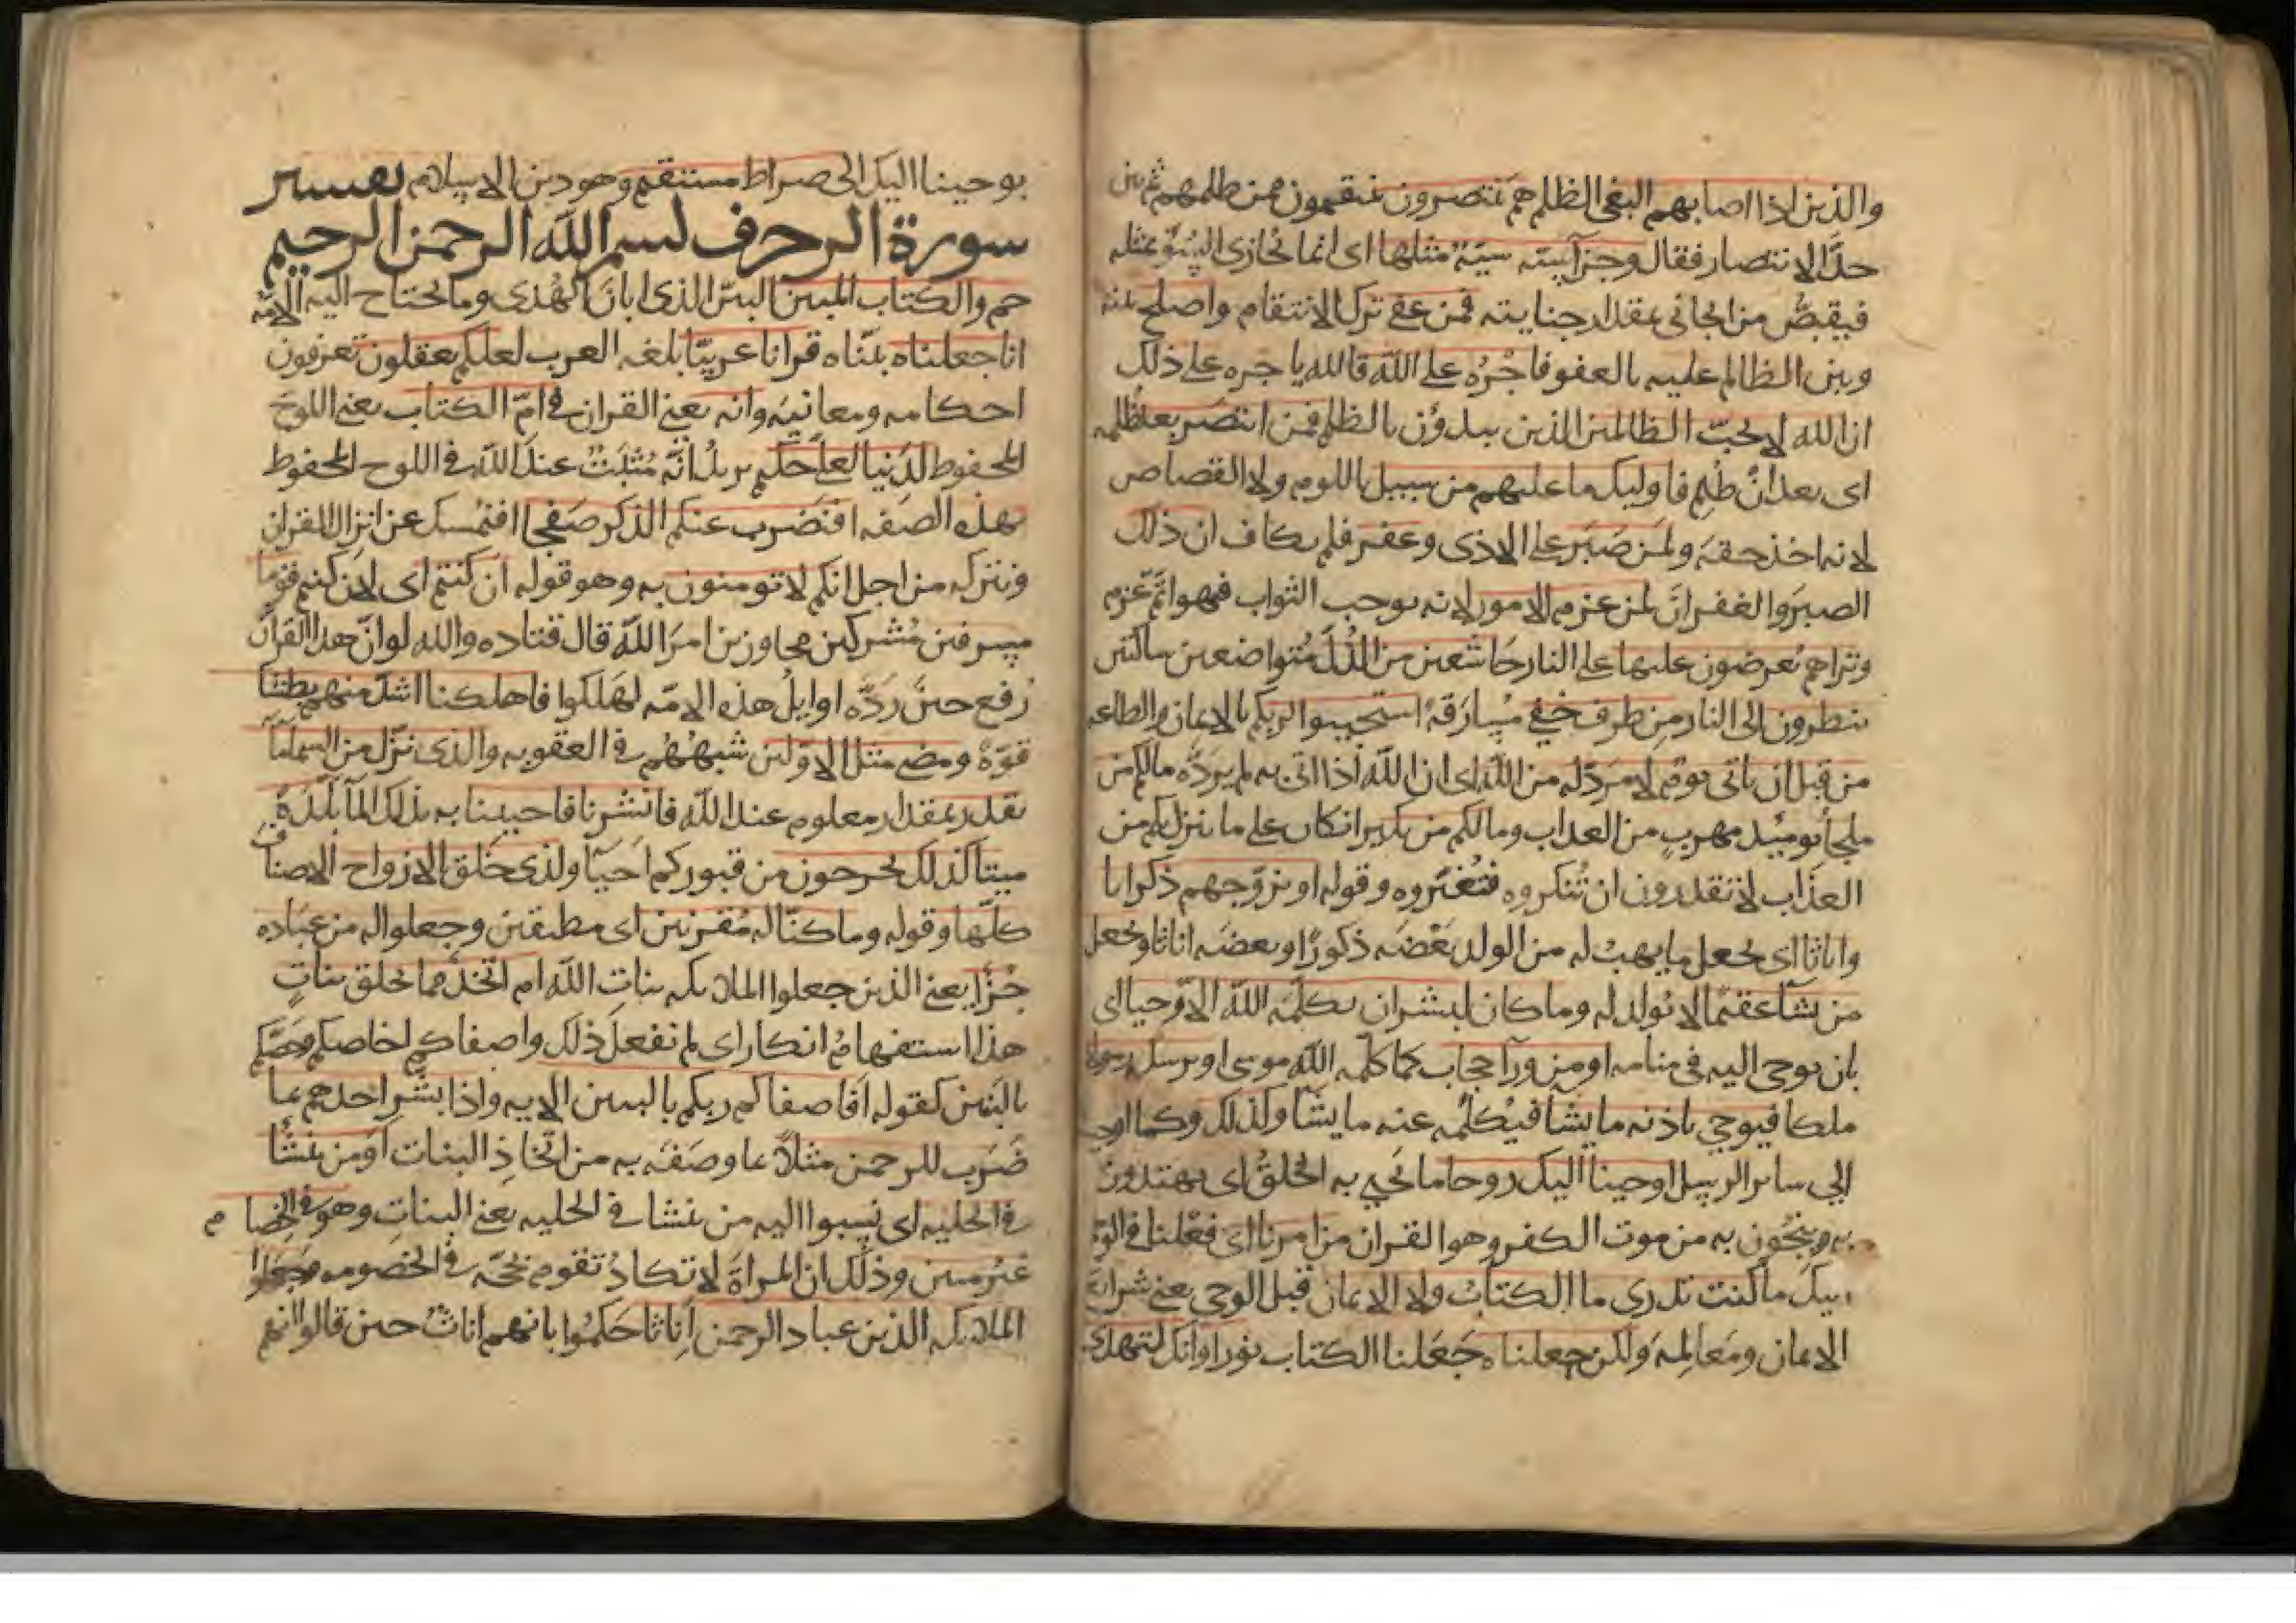 والذين اذا اصابهم البغي الظلم هم ينتصرون ينتقمون ممن ظلمهم ثم بين
حدّ الانتصار فقال وجزآ سيئة سيئة مثلها اى انما يجازى السوّ بمثله
فيقتصّ من الجانى بمقدار جنايته فمن عفى ترك الانتقام واصلح بينه
وبين الظالم عليه بالعفو فاجْرُه على الله قا لله ياجره على ذلك
ان الله لا يحبّ الظالمين الذين يبدؤن بالظلم فمن انتصر بعد ظلمه
اى بعد انْ ظُلِم فاوليك ما عليهم من سبيل باللوم ولا القصاص
لانه اخذ حقه ولمن صَبَر على الاذى وغفر فلم يكاف ان ذلك
الصبر والغفران لمن عزم الامور لانه يوجب الثواب فهو اتمّ عزم
وتراهم يُعرضون عليها على النار خاشعين من الذُلّ مُتواضعين ساكتين
ينظرون الى النار من طرف خفي مُسارَقةً استجيبوا لربكم بالايمان والطاعه
من قبل ان ياتى يوم لا مردّ له من الله اى ان الله اذا اتى به لم يردّه مالكم من
ملجأ يوميذ مهربٍ من العذاب ومالكم من نكير انكار على ما ينزل بكم من
العذاب لا تقدرون ان تُنكروه فتُغيّروه وقوله او يزوّجهم ذكرانا
واناثا اى يجعل ما يهب له من الولد بَعْضَه ذكورًا وبعضَه اناثا ويجعل
من يشآ عقيمًا لا يُولد له وما كان لبشر ان يكلّمه الله الا وحيا اى
بان يوحى اليه فى منامه او من ورآ حجاب كما كلّم الله موسى او يرسل رسولا
ملكا فيوحى باذنه ما يشا فيُكلّمه عنه ما يشآ وكذلك وكما اوحينا
الى ساير الرسل اوحينا اليك روحا ما يحيى به الخلقُ اى يهتدون
به وينجُون به من موت الكفر وهو القران من امرنا اى فعْلنا فى الوحى
اليك ما كنت تدرى ما الكتابُ ولا الايمان قبل الوحى يعنى شرايعَ
الايمان ومَعالِمه ولكن جعلناه جَعَلنا الكتاب نورا وانك لتهدى
بوحينا اليك الى صراط مستقيم وهو دين الاسلام تفسير
سورة الزخرف بسم الله الرحمن الرحيم
حم والكتاب المبين البيّن الذى ابانَ الهُدى وما يحتاج اليه الامّه
انا جعلناه بيّنّاه قرانا عربيّا بلغه العرب لعلكم تعقلون تعرفون
احكامه ومعانيَه وانه يعنى القران فى امّ الكتاب يعنى اللوحَ
المحفوظ لدَينا لعلىٌّ حكيم يريدُ انّه مُثبَتٌ عند الله فى اللوح المحفوظ
بهذه الصفه افنَضرب عنكم الذكر صفحا افنُمسك عن انزال القران
ونتركه من اجل انكم لا تومنون به وهو قوله ان كنتم اى لان كنتم قوما
مسرفين مُشركين مجاوزين امرَ الله قال قتاده والله لو انّ هذا القرآن
رُفع حينَ ردّه اوايلُ هذه الامّه لهَلكوا فاهلكنا اشدّ منهم بطشا
قوّةً ومضى مثل الاوّلين شبهُهُم فى العقوبه والذى نزّل من السماما
بقدر بمقدار معلوم عند الله فانشرنا فاحيينا به بذلك المآ بلدةً
ميتا كذلك تخرجون من قبوركم احيآ ولذى خلق الازواج الاصنافَ
كلّها وقوله وما كنّا له مُقرنين اى مطيقين وجعلوا له من عباده
جُزًا يعنى الذين جعلوا الملايكه بناتِ الله ام اتّخذ مما يخلق بناتٍ
هذا استفهامُ انكار اى لم تفعل ذلك واصفاكم اخلصكم وخصّكم
بالبَنين كقوله افاصفاكم ربكم بالبنين الايه واذا بشر احدهم بما
ضَرَب للرحمن مثلاً بما وصَفَه به من اتخاذِ البنات اوَمن ينشأ
فى الحليه اى نَسبوا اليه من ينشا فى الحليه يعنى البناتِ وهو فى الخصام
غيرُ مبين وذلك ان المراة لا تكادُ تقوم بحُجّه فى الخصومه وجعلوا
الملايكه الذين عباد الرحمن اِناثا حكمُوا بانهم اناثٌ حين قالوا انهم